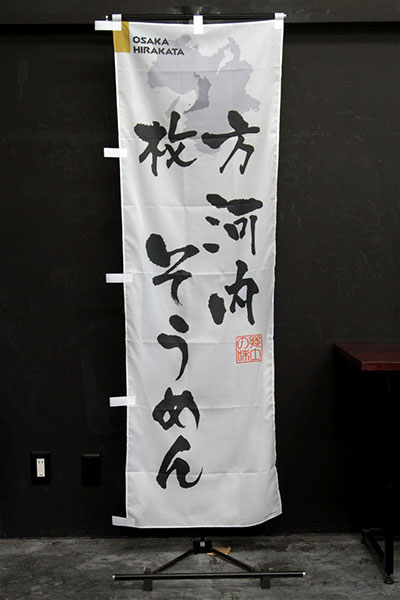 OSAKA
HIRAKATA
枚方
河内
そうめん
郷土
の味